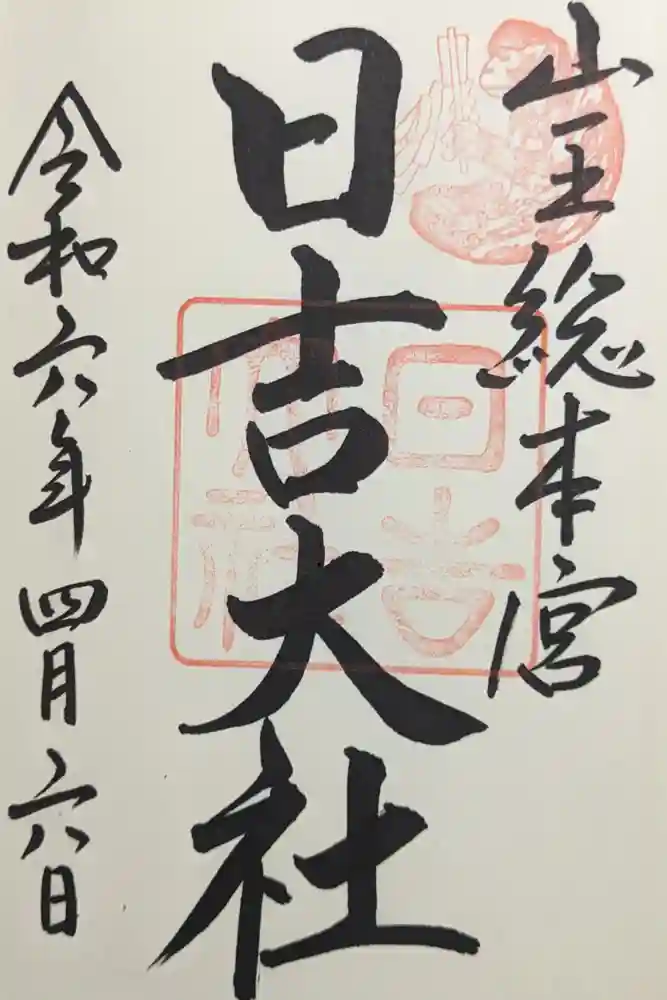 山王総本宮
日吉大社
日吉大社
令和六年四月六日